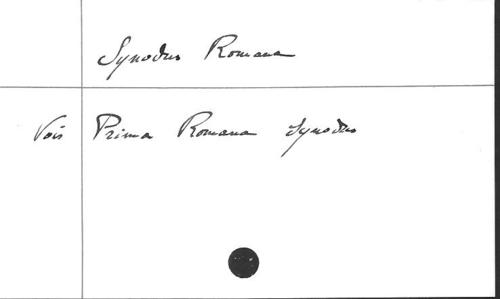 Synodus Romana
Vois Prima Romana Synodus